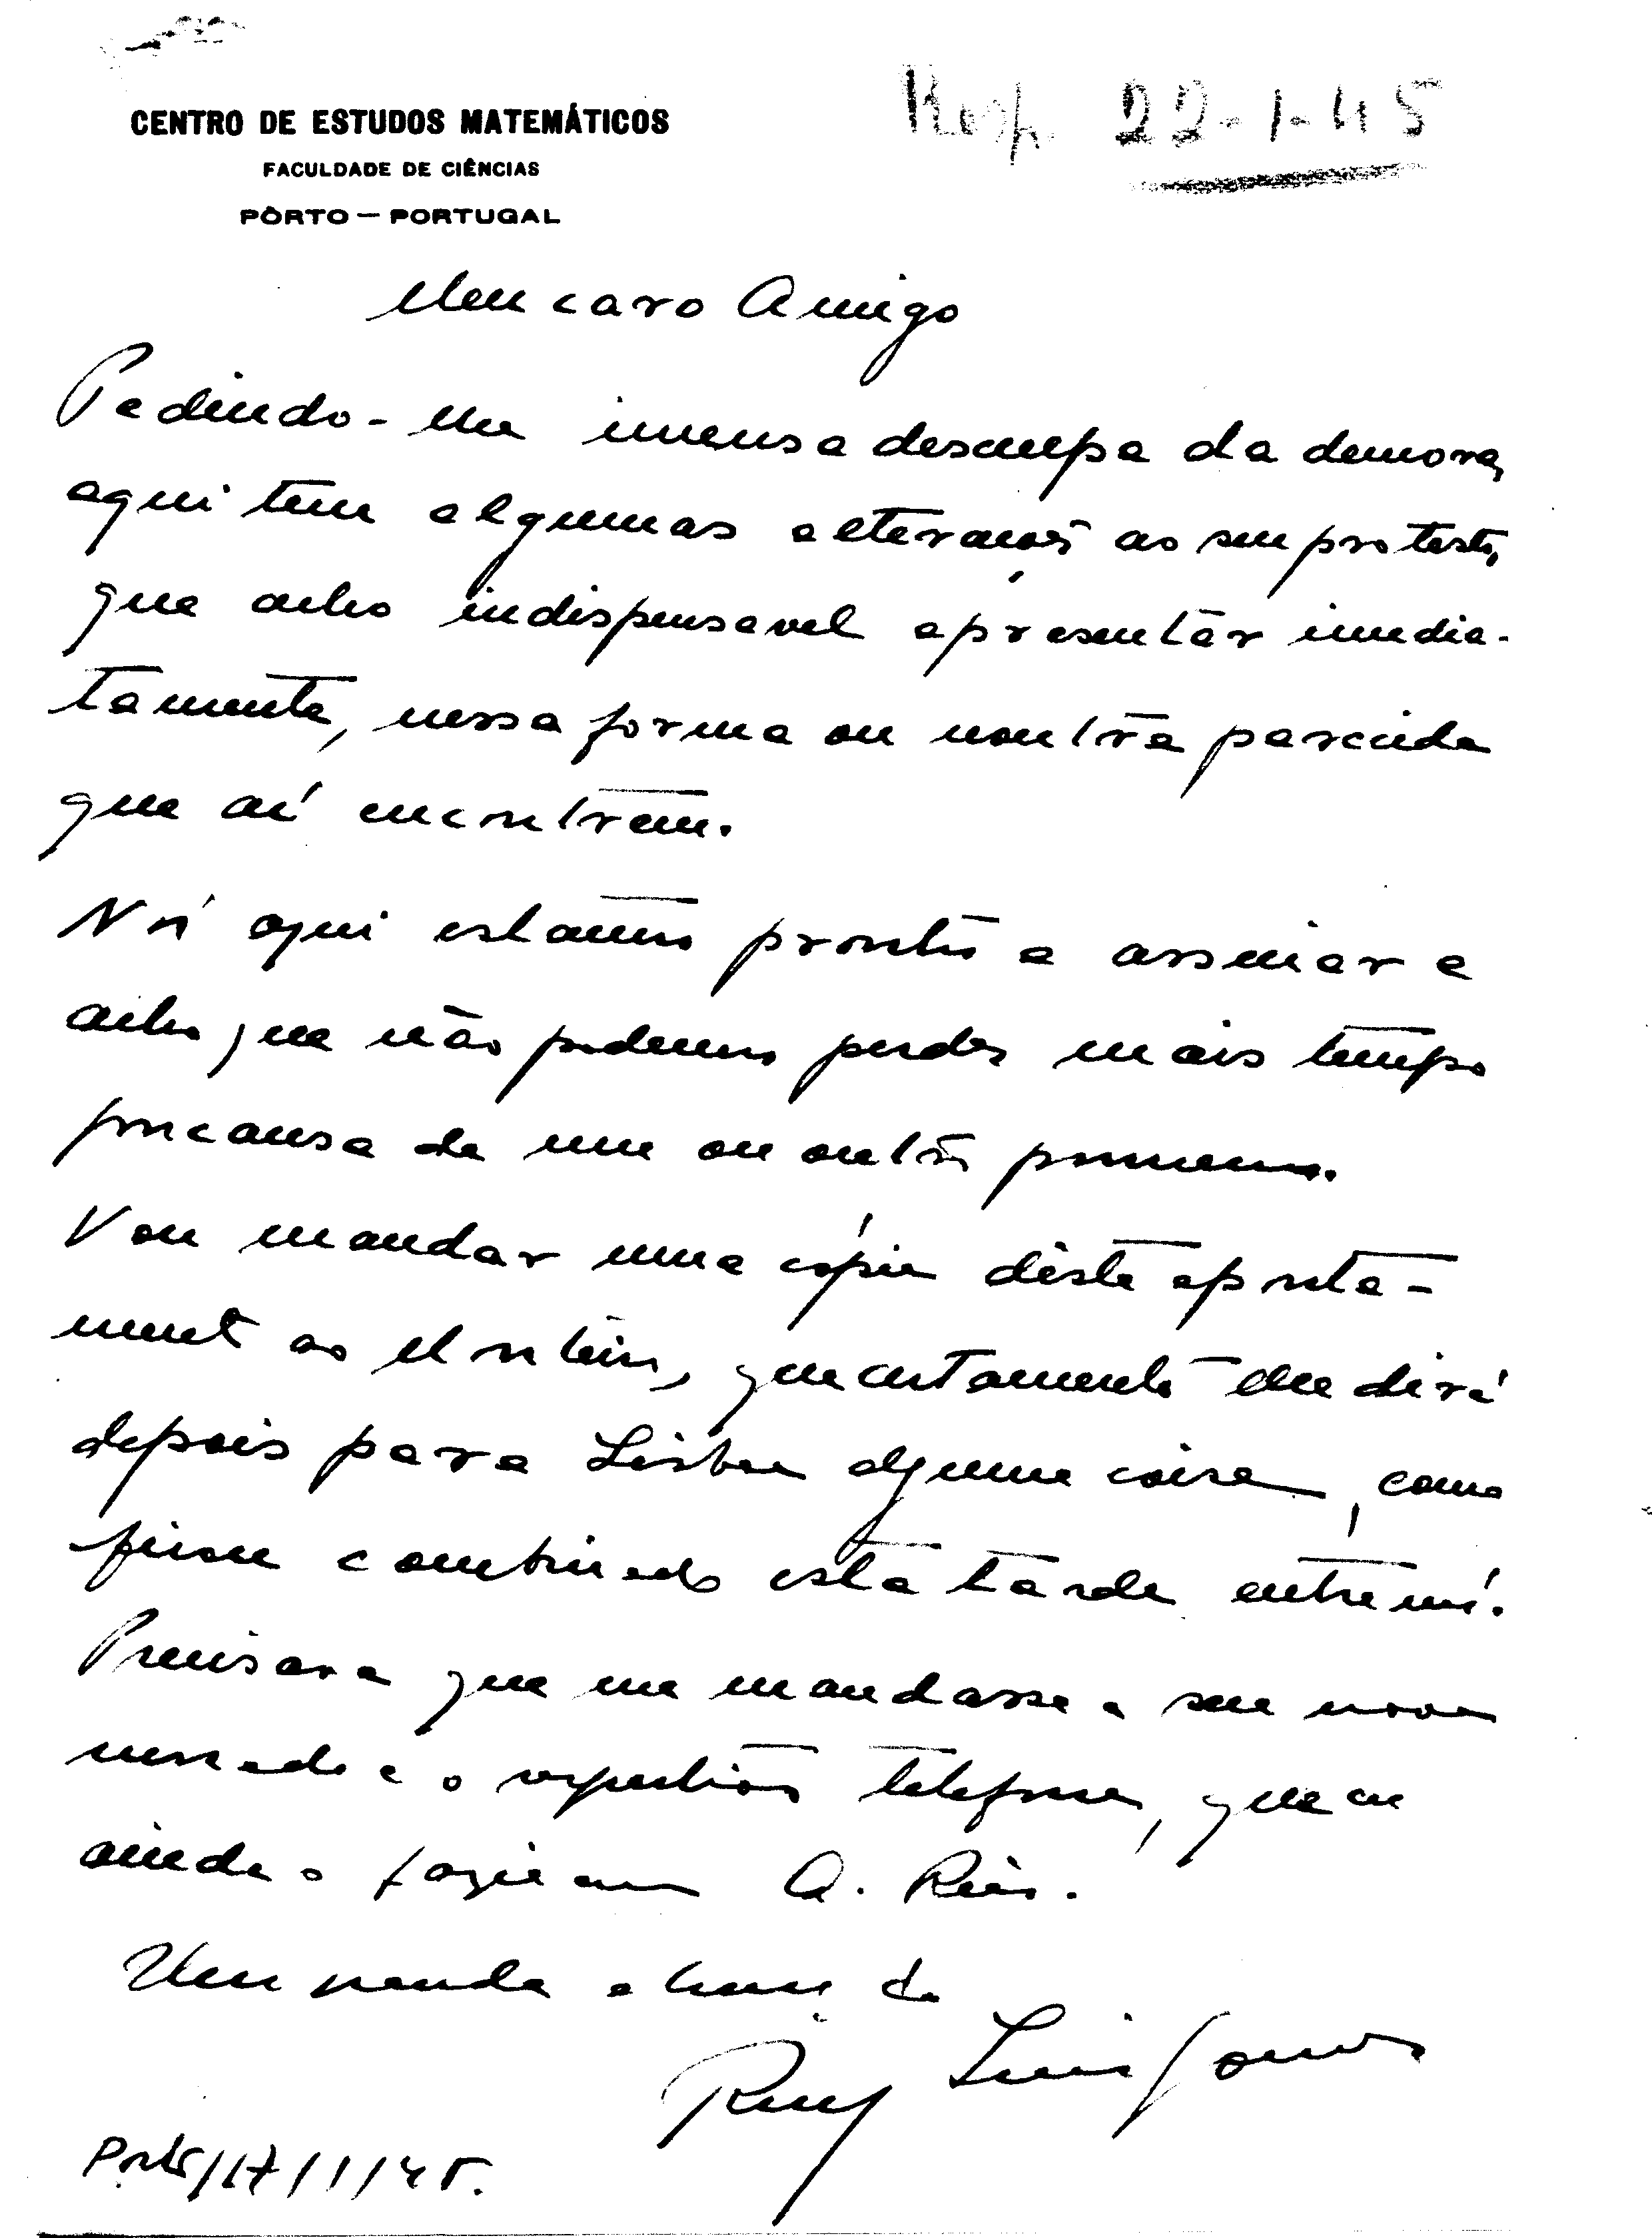 CENTRO DE ESTUDOS MATEMÁTICOS
FACULDADE DE CIÊNCIAS
PÔRTO — PORTUGAL
Resp. 22-1-45
Meu caro Amigo
Pedindo-me imensa desculpa da demora,
aqui tem algumas alterações ao seu protesto,
que acho indispensavel apresentar imedia-
tamente, nessa forma ou noutra parecida
que aí encontrem.
Nós aqui estamos prontos a assinar e
acho que não podemos perder mais tempo
por causa de um ou outro pormenor.
Vou mandar uma cópia dêste aponta-
mento ao Monteiro, que certamente lhe dirá
depois para Lisboa alguma coisa, como
ficou combinado esta tarde entre nós.
Precisava que me mandasse a sua nova
morada e o respectivo telefone, que eu
ainda o fazia em A. Reis.
Um grande abraço do
Ruy Luís Gomes
Porto/17/1/45.